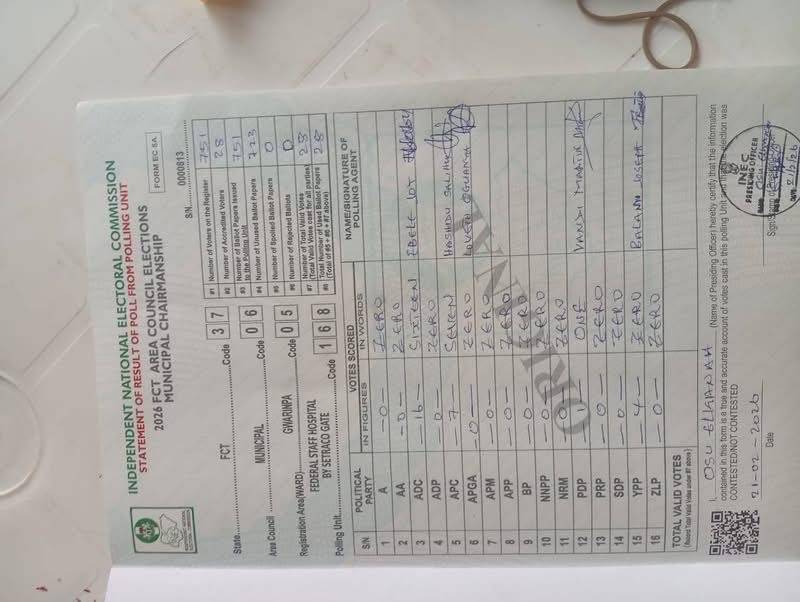 INDEPENDENT NATIONAL ELECTORAL COMMISSION
STATEMENT OF RESULT OF POLL FROM POLLING UNIT
2026 FCT AREA COUNCIL ELECTIONS
MUNICIPAL CHAIRMANSHIP
FORM EC 8A
S/N. 0000813
State FCT Code 37
Area Council MUNICIPAL Code 06
Registration Area(WARD) GWARINPA Code 05
Polling Unit FEDERAL STAFF HOSPITAL BY SETRACO GATE Code 168
#1 Number of Voters on the Register 751
#2 Number of Accredited Voters 28
#3 Number of Ballot Papers Issued to the Polling Unit 751
#4 Number of Unused Ballot Papers 723
#5 Number of Spoiled Ballot Papers 0
#6 Number of Rejected Ballots 0
#7 Number of Total Valid Votes (Total Valid Votes cast for all parties) 28
#8 Total Number of Used Ballot Papers (Total of #5 + #6 + #7 above) 28
S/N POLITICAL PARTY VOTES SCORED IN FIGURES IN WORDS NAME/SIGNATURE OF POLLING AGENT
1 A -0- ZERO
2 AA -0- ZERO
3 ADC -16- SIXTEEN EBELE JOY
4 ADP -0- ZERO
5 APC -7- SEVEN HASHIDU SALIHU
6 APGA -0- ZERO LOVETH
7 APM -0- ZERO
8 APP -0- ZERO
9 BP -0- ZERO
10 NNPP -0- ZERO
11 NRM -0- ZERO
12 PDP -1- ONE MARTIN
13 PRP -0- ZERO
14 SDP -0- ZERO
15 YPP -4- ZERO BALAMI JOSEPH
16 ZLP -0- ZERO
TOTAL VALID VOTES
(Record Total Valid Votes under #7 above)
ORIGINAL
I, OSU ELIGANAH (Name of Presiding Officer) hereby certify that the information
contained in this form is a true and accurate account of votes cast in this polling Unit and that the election was
CONTESTED/NOT CONTESTED
21-02-2026
Date
INEC
PRESIDING OFFICER